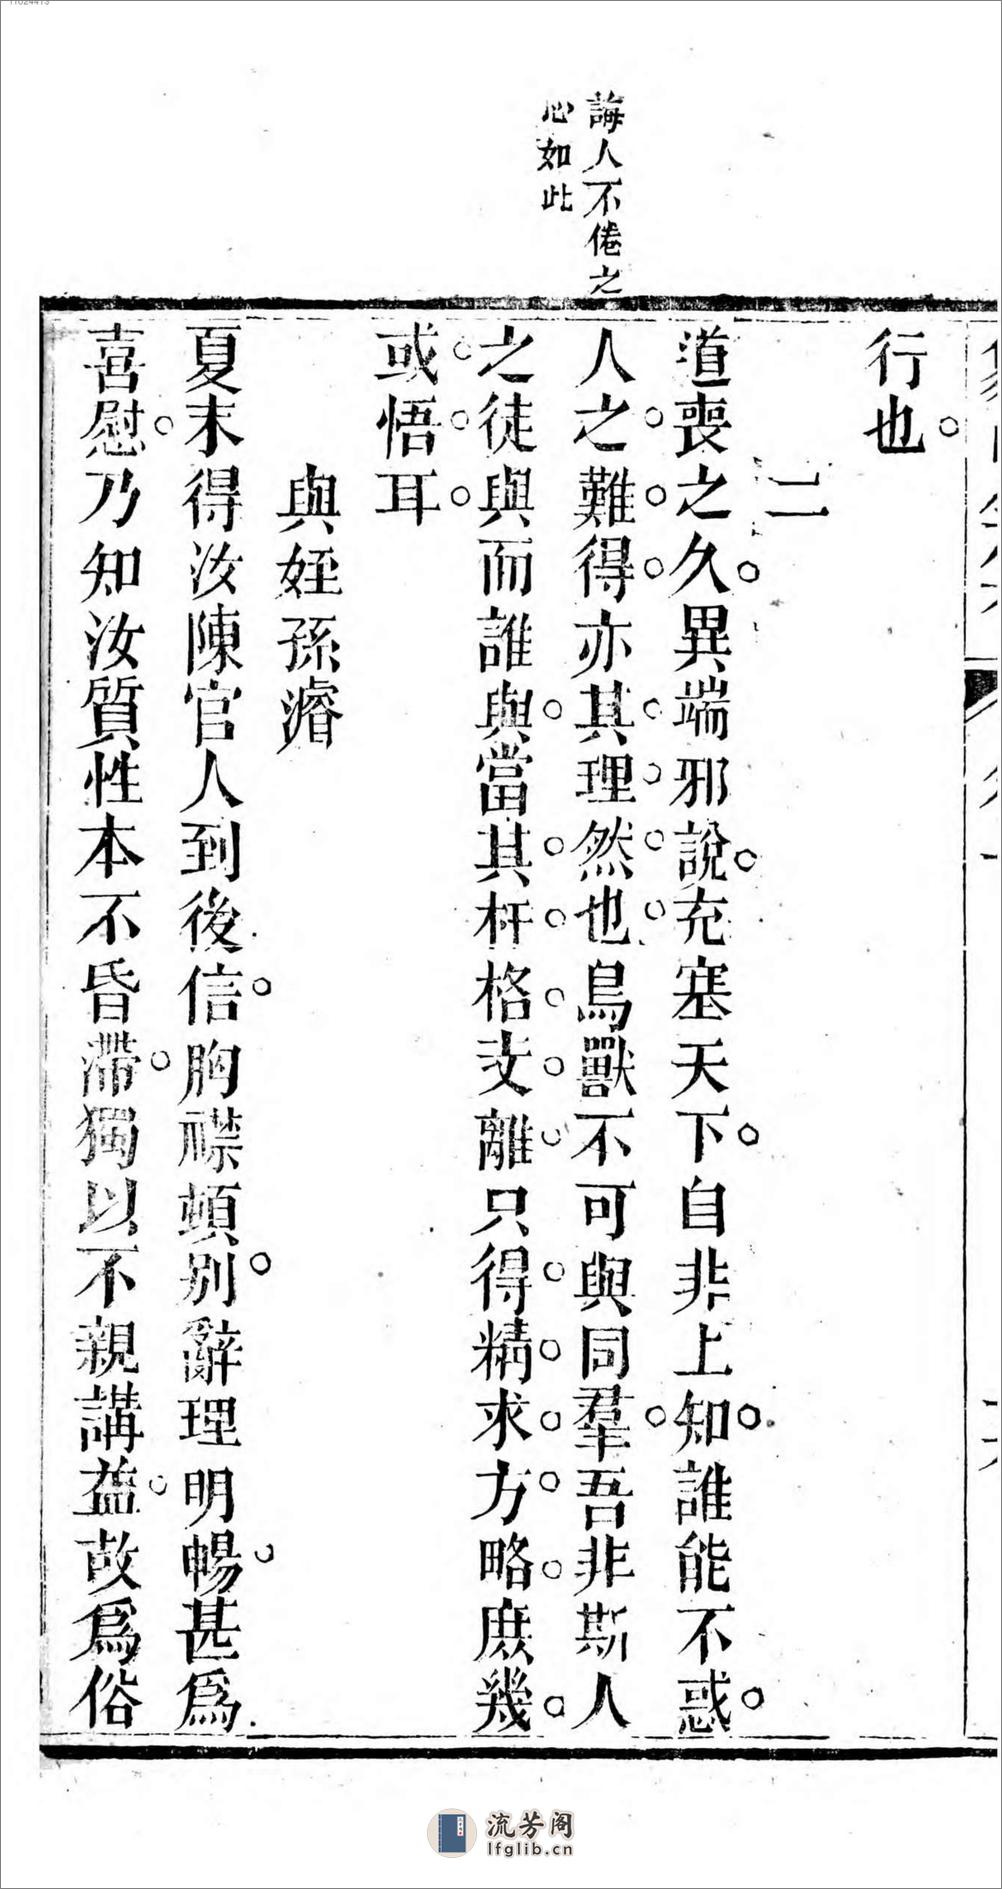 誨人不倦之
心如此
行也
二
道喪之久異端邪說充塞天下自非上知誰能不惑
人之難得亦其理然也鳥獸不可與同羣吾非斯人
之徒與而誰與當其杆格支離只得精求方略庶幾
或悟耳
與姪孫濬
夏末得汝陳官人到後信胸襟頓别辭理明暢甚爲
喜慰乃知汝質性本不昏滯獨以不親講益故爲俗
流芳阁
lfglib.cn
11024413